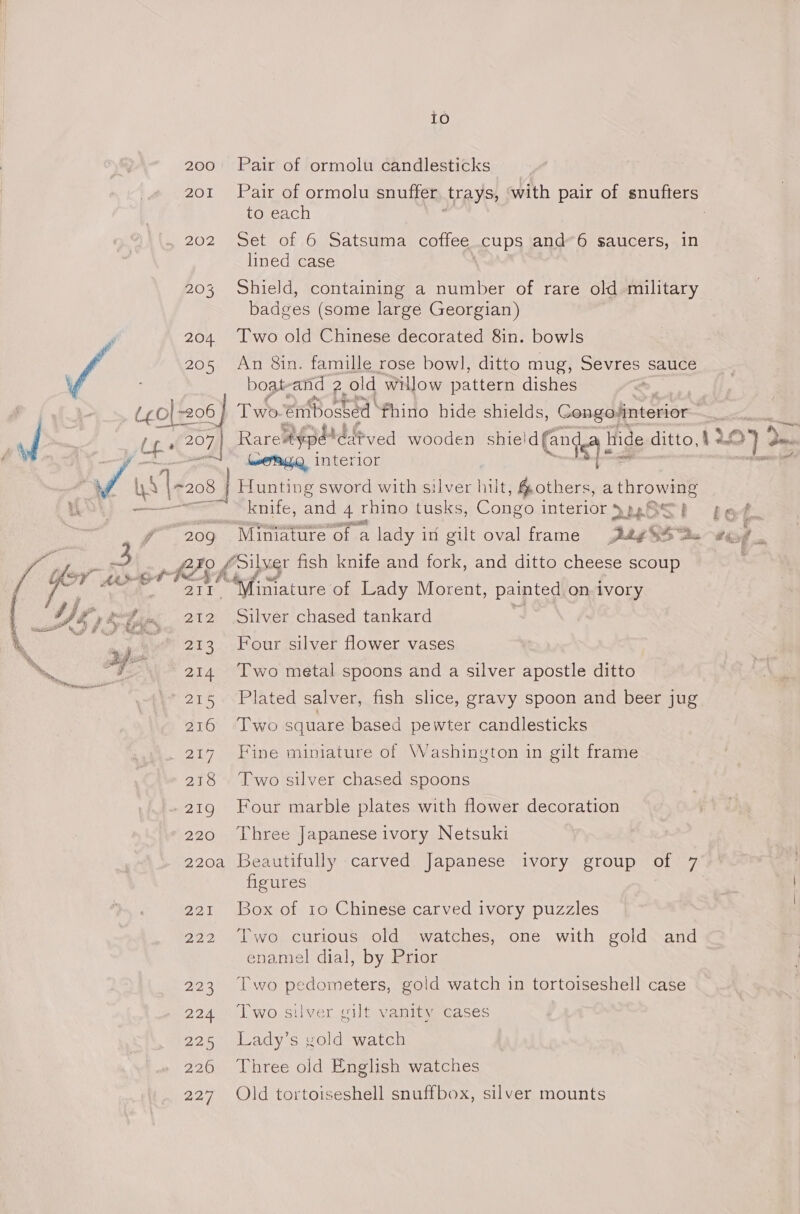 10
200 Pair of ormolu candlesticks
201 Pair of ormolu snuffer trays, with pair of snuffers
to each
202 Set of 6 Satsuma coffee cups and 6 saucers, in
lined case
203 Shield, containing a number of rare old military
badges (some large Georgian)
204 Two old Chinese decorated 8in. bowls
205 An 8in. famille rose bowl, ditto mug, Sevres sauce
boat and 2 old willow pattern dishes
206 Two embossed rhino hide shields, Congo interior
207 Rare type carved wooden shield and a hide ditto,
Congo interior
208 Hunting sword with silver hilt, others, a throwing
knife, and 4 rhino tusks, Congo interior
209 Miniature of a lady in gilt oval frame
210 Silver fish knife and fork, and ditto cheese scoup
211 Miniature of Lady Morent, painted on ivory
212 Silver chased tankard
213 Four silver flower vases
214 Two metal spoons and a silver apostle ditto
215 Plated salver, fish slice, gravy spoon and beer jug
216 Two square based pewter candlesticks
217 Fine miniature of Washington in gilt frame
218 Two silver chased spoons
219 Four marble plates with flower decoration
220 Three Japanese ivory Netsuki
220a Beautifully carved Japanese ivory group of 7
figures
221 Box of 10 Chinese carved ivory puzzles
222 Two curious old watches, one with gold and
enamel dial, by Prior
223 Two pedometers, gold watch in tortoiseshell case
224 Two silver gilt vanity cases
225 Lady's gold watch
226 Three old English watches
227 Old tortoiseshell snuffbox, silver mounts